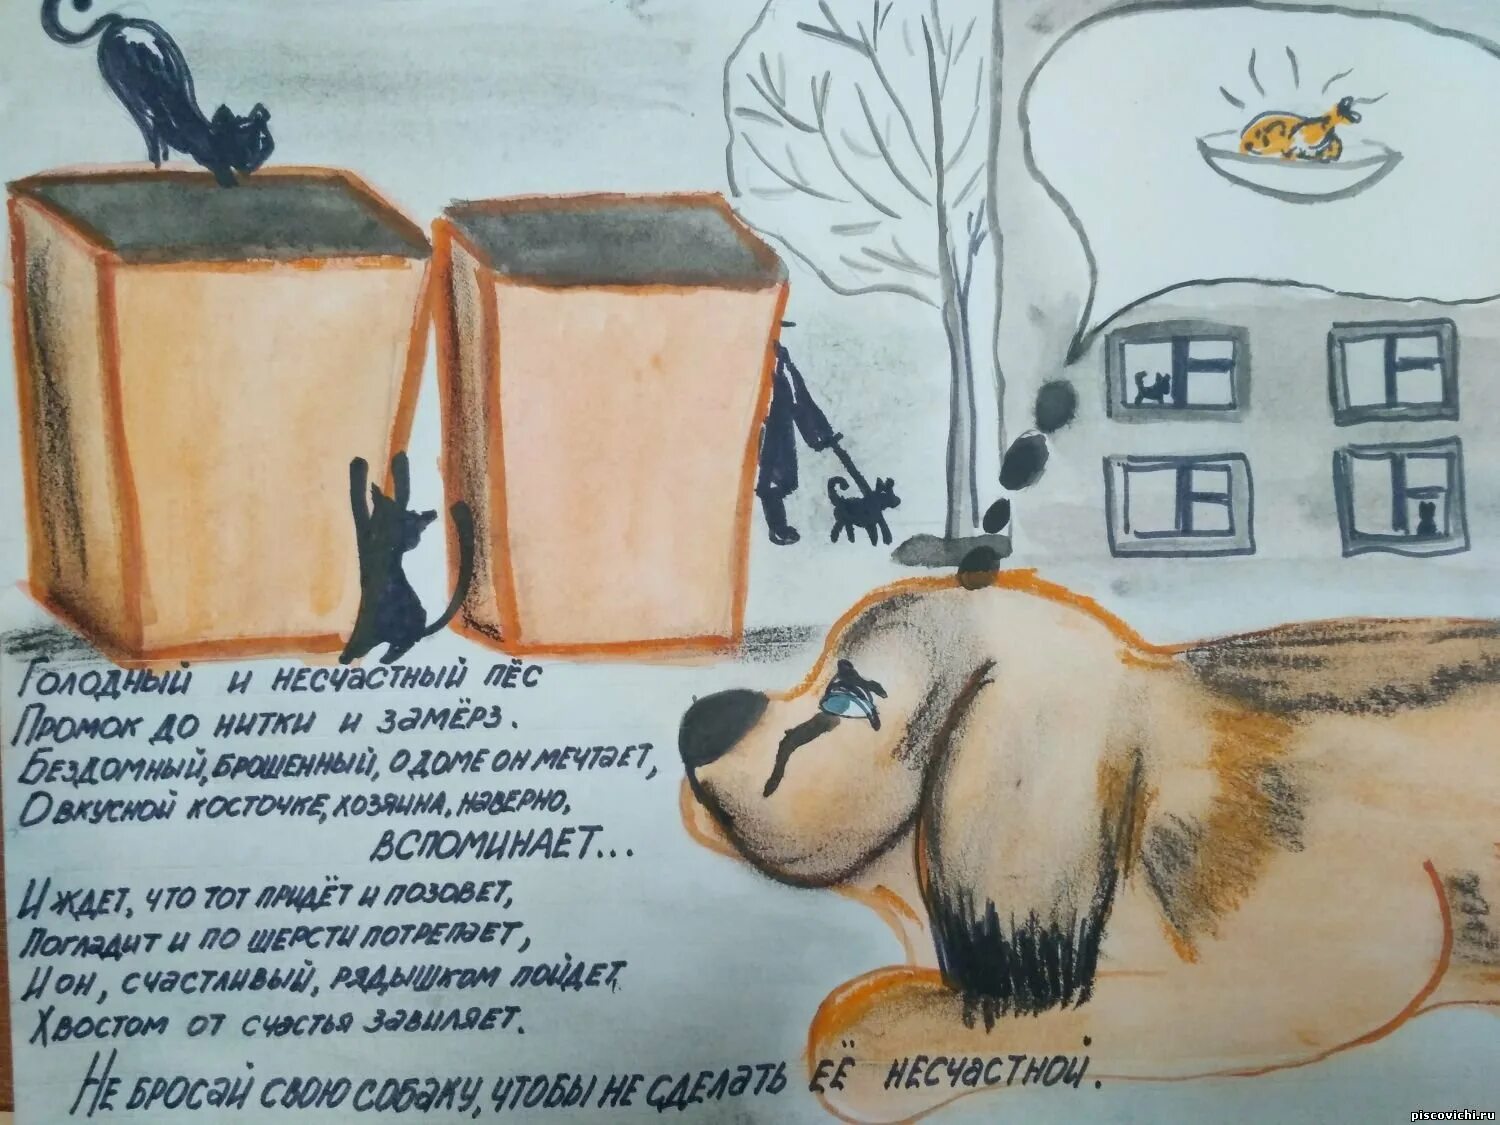 Голодный и несчастный пёс
Промок до нитки и замёрз.
Бездомный, брошенный, о доме он мечтает,
О вкусной косточке, хозяина, наверно,
вспоминает...
И ждет, что тот придёт и позовет,
Погладит и по шерсти потреплет,
И он, счастливый, рядышком пойдет,
Хвостом от счастья завиляет.
Не бросай свою собаку, чтобы не сделать её несчастной.
piscovichi.ru